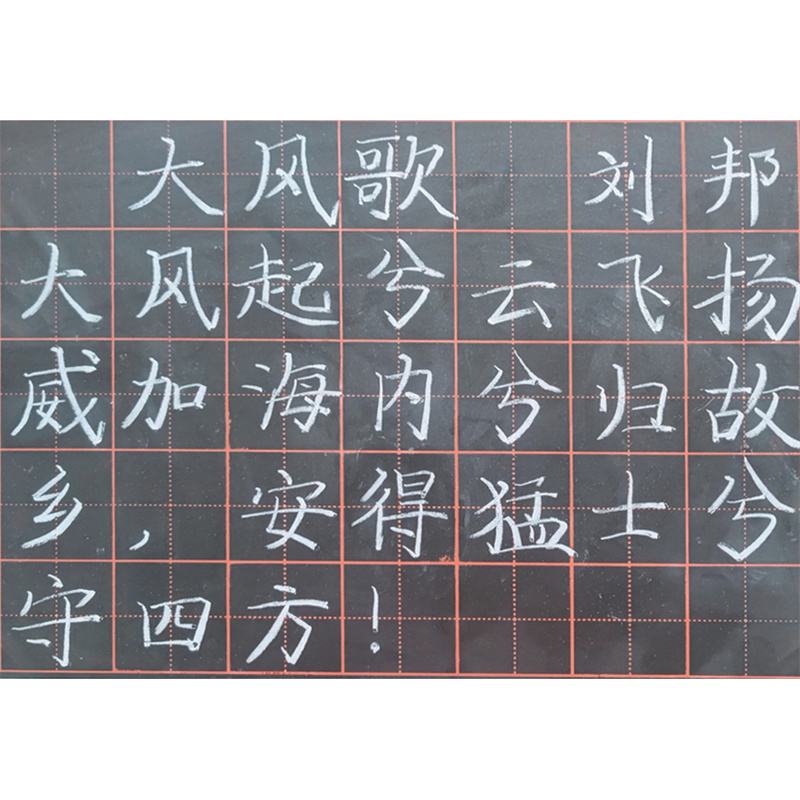 大风歌 刘邦
大风起兮云飞扬
威加海内兮归故
乡，安得猛士兮
守四方！